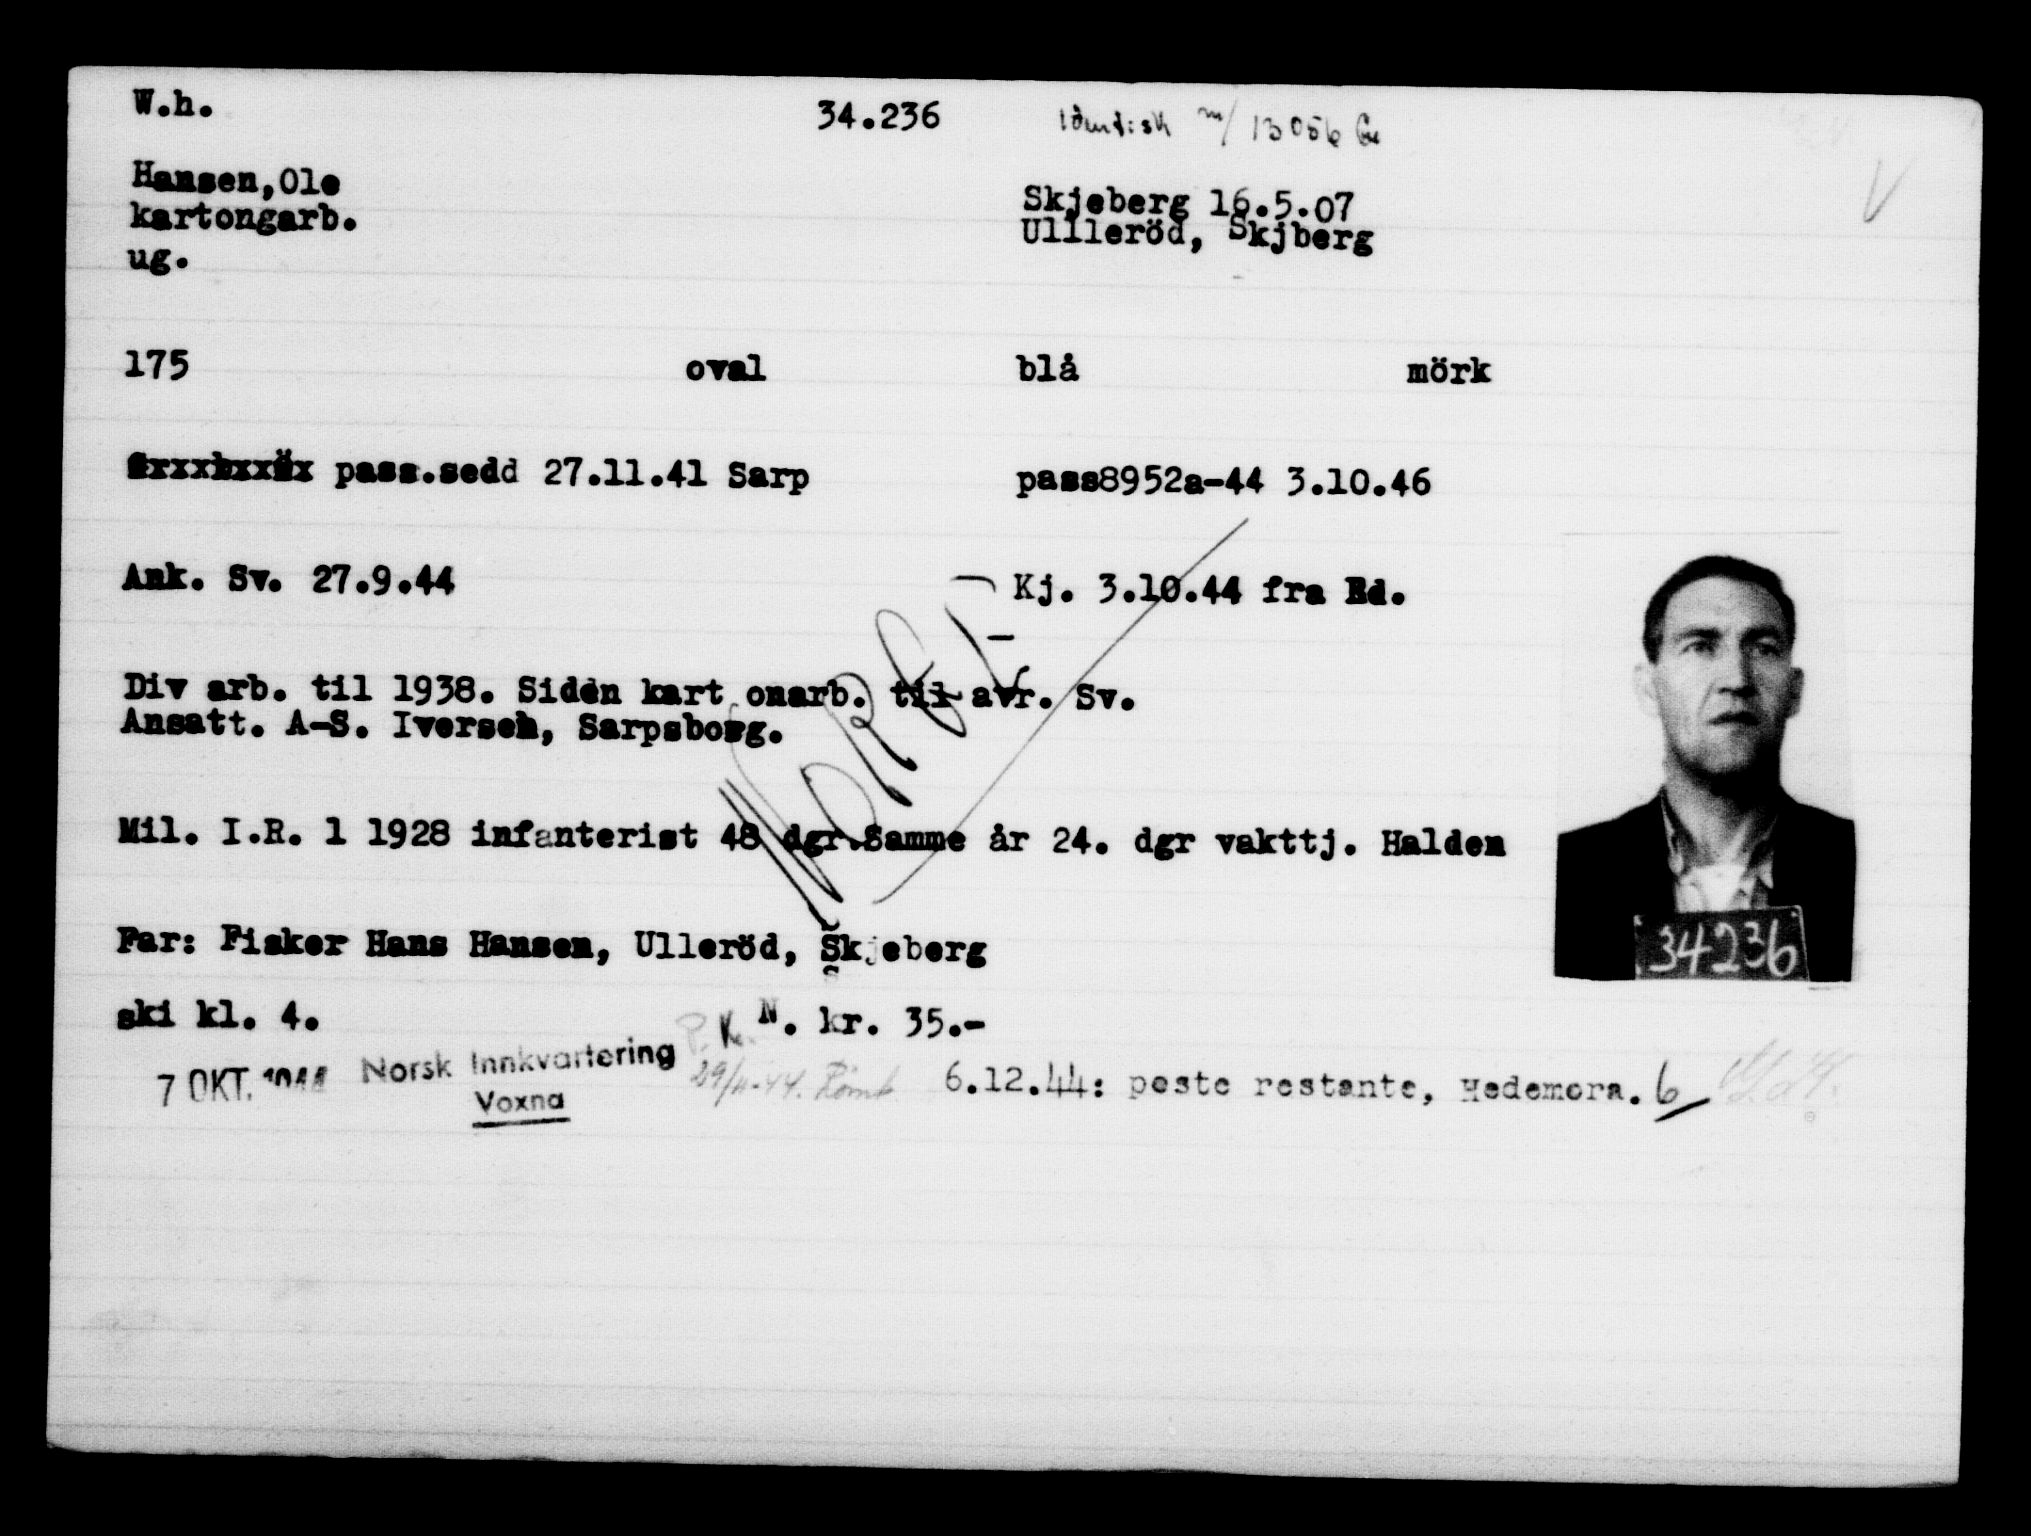 W.h.
34.236
Identisk m/ 13056
V
Hansen,Ole
Skjeberg 16.5.07
kartongarb.
Ullleröd, Skjberg
ug.
175 oval blå mörk
pass.sedd 27.11.41 Sarp
pass8952a-44 3.10.46
Ank. Sv. 27.9.44
Kj. 3.10.44 fra Ed.
Div arb. til 1938. Siden kart onarb. til avr. Sv.
Ansatt. A-S. Iversen, Sarpsborg.
NORGE
Mil. I.R. 1 1928 infanterist 48 dgr.Samme år 24. dgr vakttj. Halden
Far: Fisker Hans Hansen, Ulleröd, Skjeberg
34236
ski kl. 4.
P. K. N. kr. 35.-
7 OKT. 1944 Norsk Innkvartering
Voxna
29/11-44. Römb
6.12.44: poste restante, Hedemora. 6